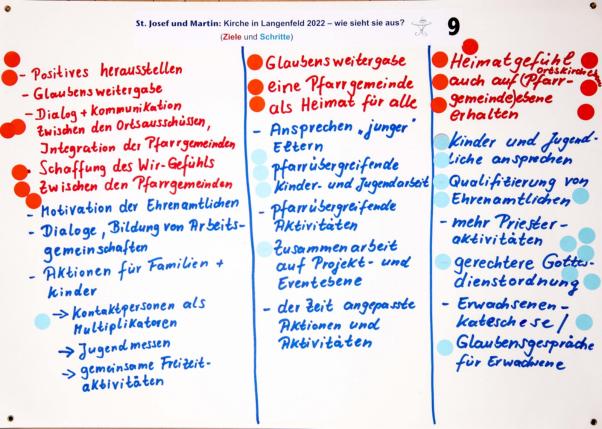 St. Josef und Martin: Kirche in Langenfeld 2022 – wie sieht sie aus?
(Ziele und Schritte)
9
- Positives herausstellen
- Glaubensweitergabe
- Dialog + Kommunikation
zwischen den Ortsausschüssen,
Integration der Pfarrgemeinden
. Schaffung des Wir-Gefühls
zwischen den Pfarrgemeinden
- Motivation der Ehrenamtlichen
- Dialoge, Bildung von Arbeits-
gemeinschaften
- Aktionen für Familien +
Kinder
→ Kontaktpersonen als
Multiplikatoren
→ Jugendmessen
→ gemeinsame Freizeit-
aktivitäten
Glaubensweitergabe
eine Pfarrgemeinde
als Heimat für alle
- Ansprechen "junger"
Eltern
- pfarrübergreifende
Kinder- und Jugendarbeit
- pfarrübergreifende
Aktivitäten
- Zusammenarbeit
auf Projekt- und
Eventebene
- der Zeit angepasste
Aktionen und
Aktivitäten
- Heimatgefühl
Ortskirche
auch auf (Pfarr-
gemeinde)ebene
erhalten
- Kinder und Jugend-
liche ansprechen
- Qualifizierung von
Ehrenamtlichen
- mehr Priester-
aktivitäten
- gerechtere Gottes-
dienstordnung
- Erwachsenen-
katechese /
Glaubensgespräche
für Erwachsene